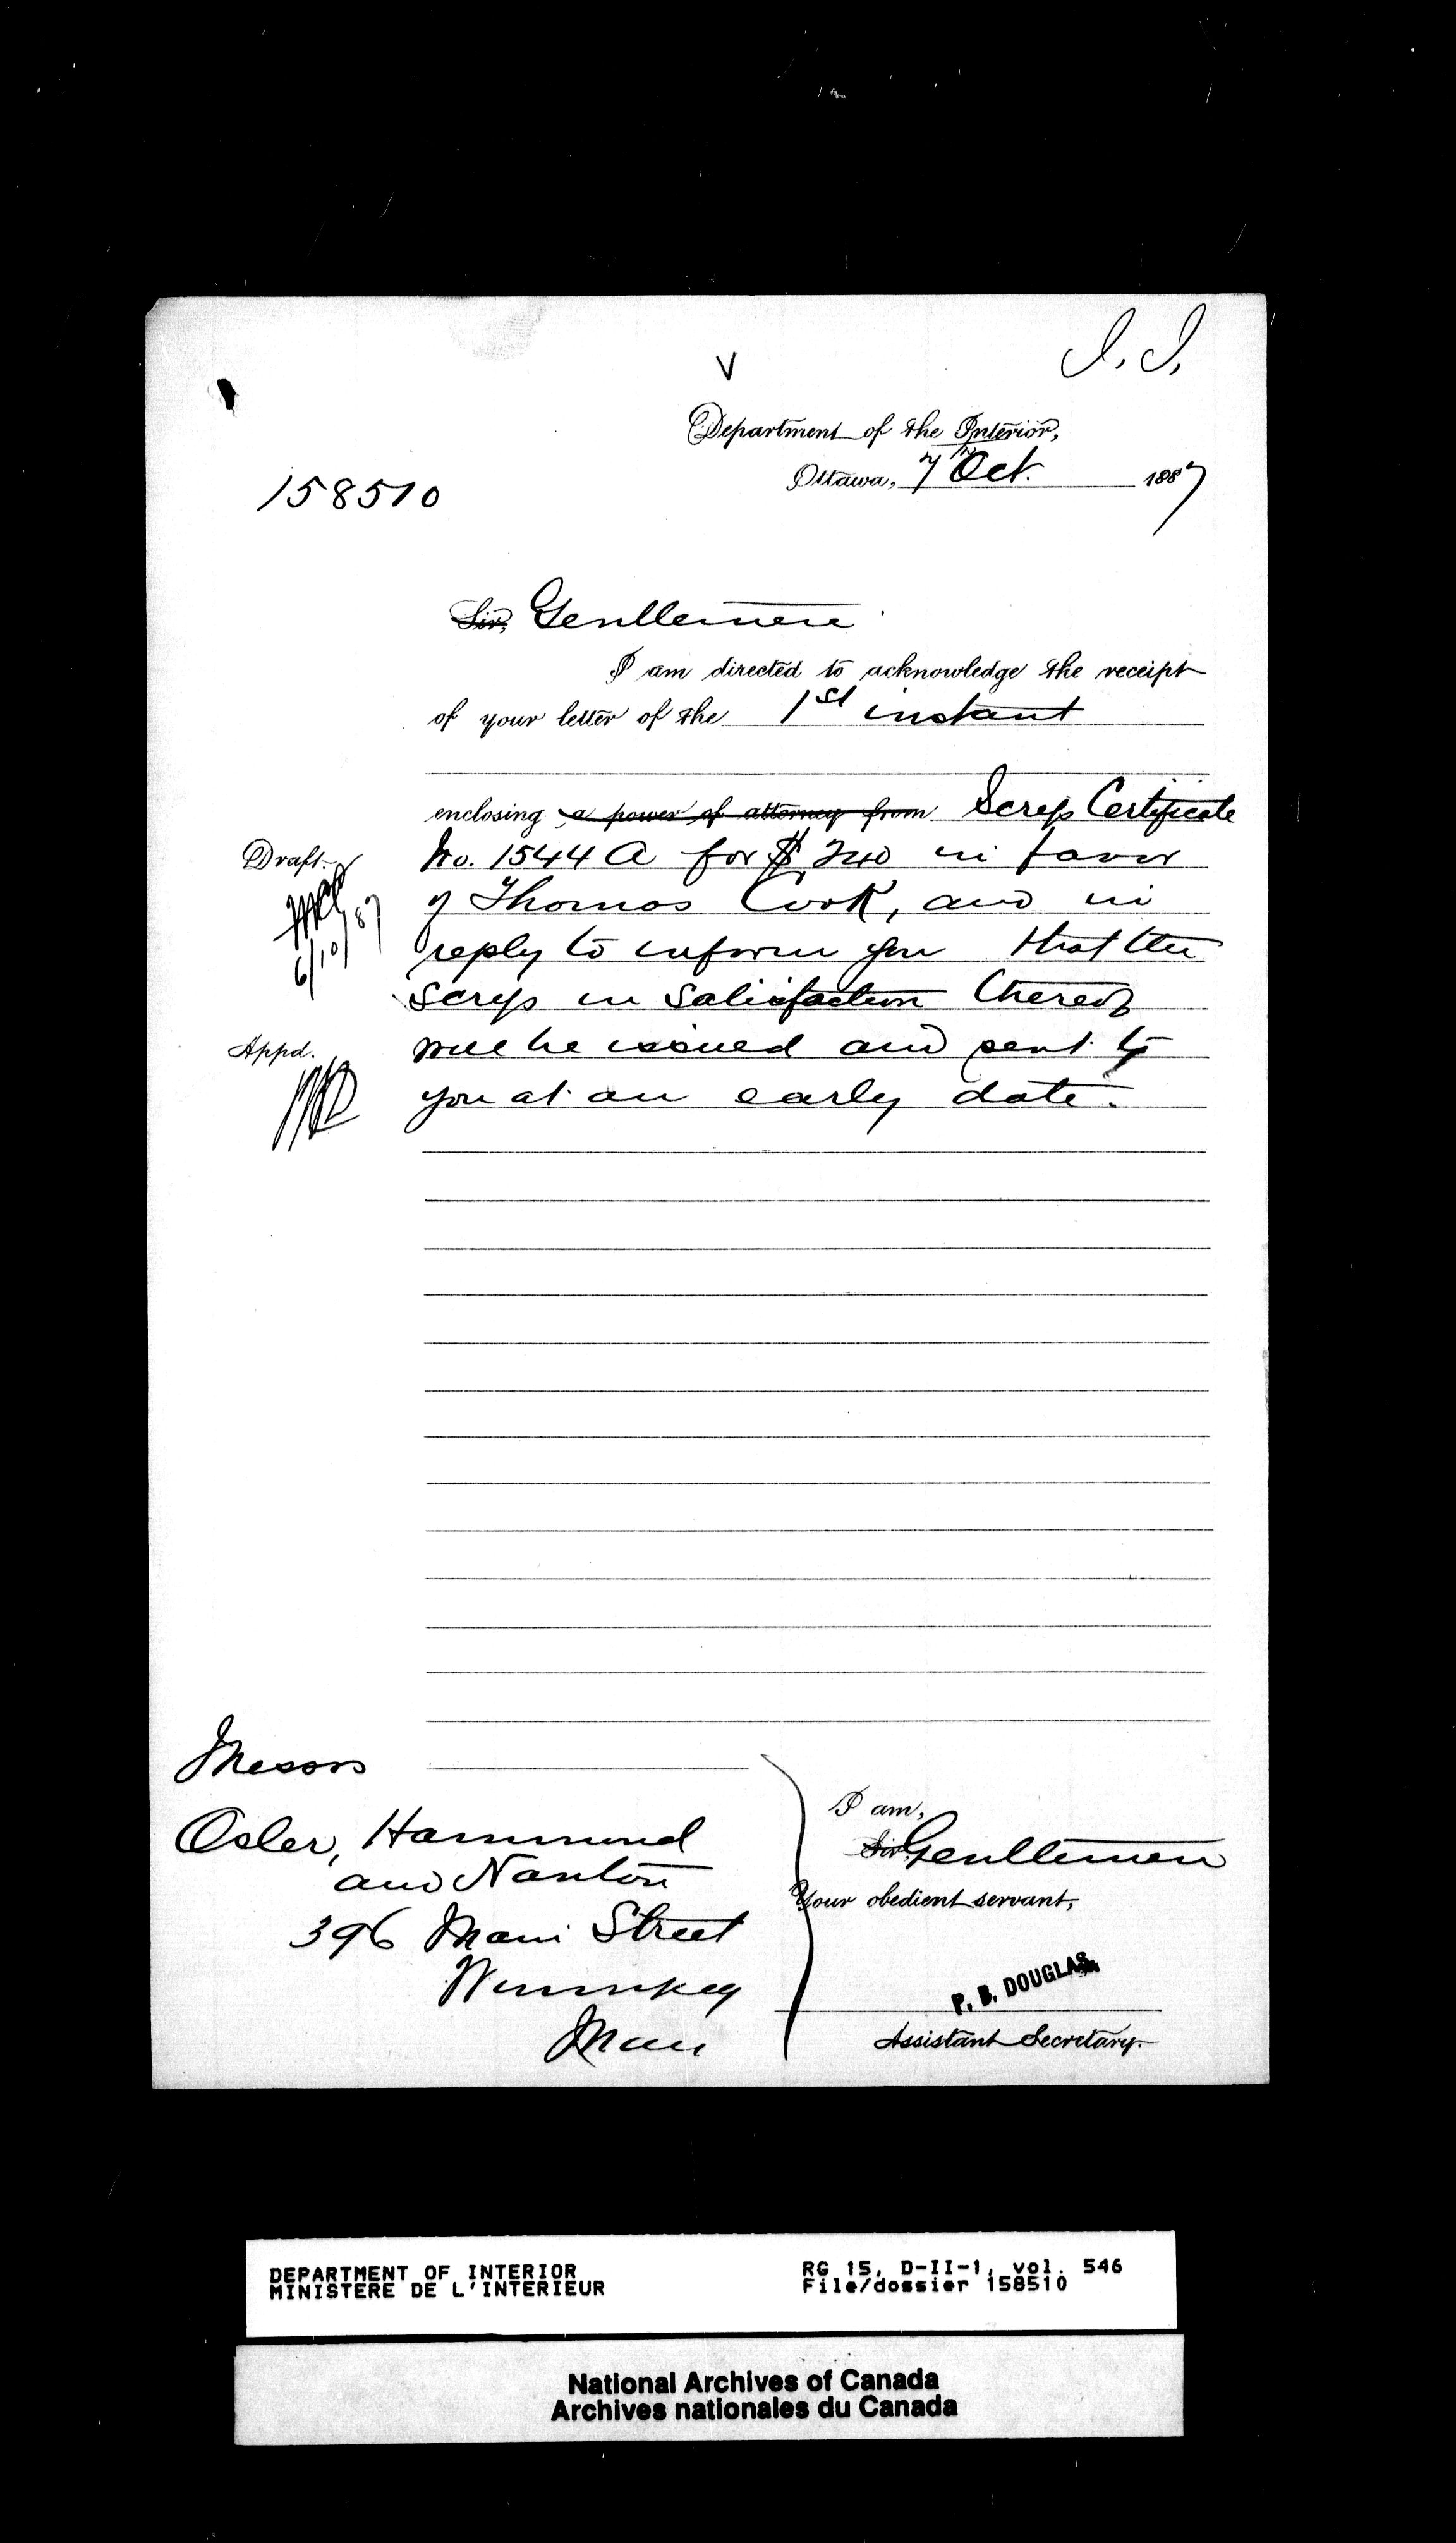 V
J. J.
Department of the Interior,
Ottawa, 7th Oct. 1887
158510
Sir, Gentlemen
I am directed to acknowledge the receipt
of your letter of the 1st instant
enclosing a power of attorney from Scrip Certificate
Draft.
No. 1544 A for $240 in favor
of Thomas Cook, and in
6/10/87
reply to inform you that the
scrip in satisfaction thereof
Appd.
will be issued and sent to
you at an early date.
Messrs
Osler, Hammond
and Nanton
396 Main Street
Winnipeg
Man
I am,
Sir, Gentlemen
Your obedient servant,
P. B. DOUGLAS.
Assistant Secretary.
DEPARTMENT OF INTERIOR
MINISTERE DE L'INTERIEUR
RG 15, D-II-1, vol. 546
File/dossier 158510
National Archives of Canada
Archives nationales du Canada